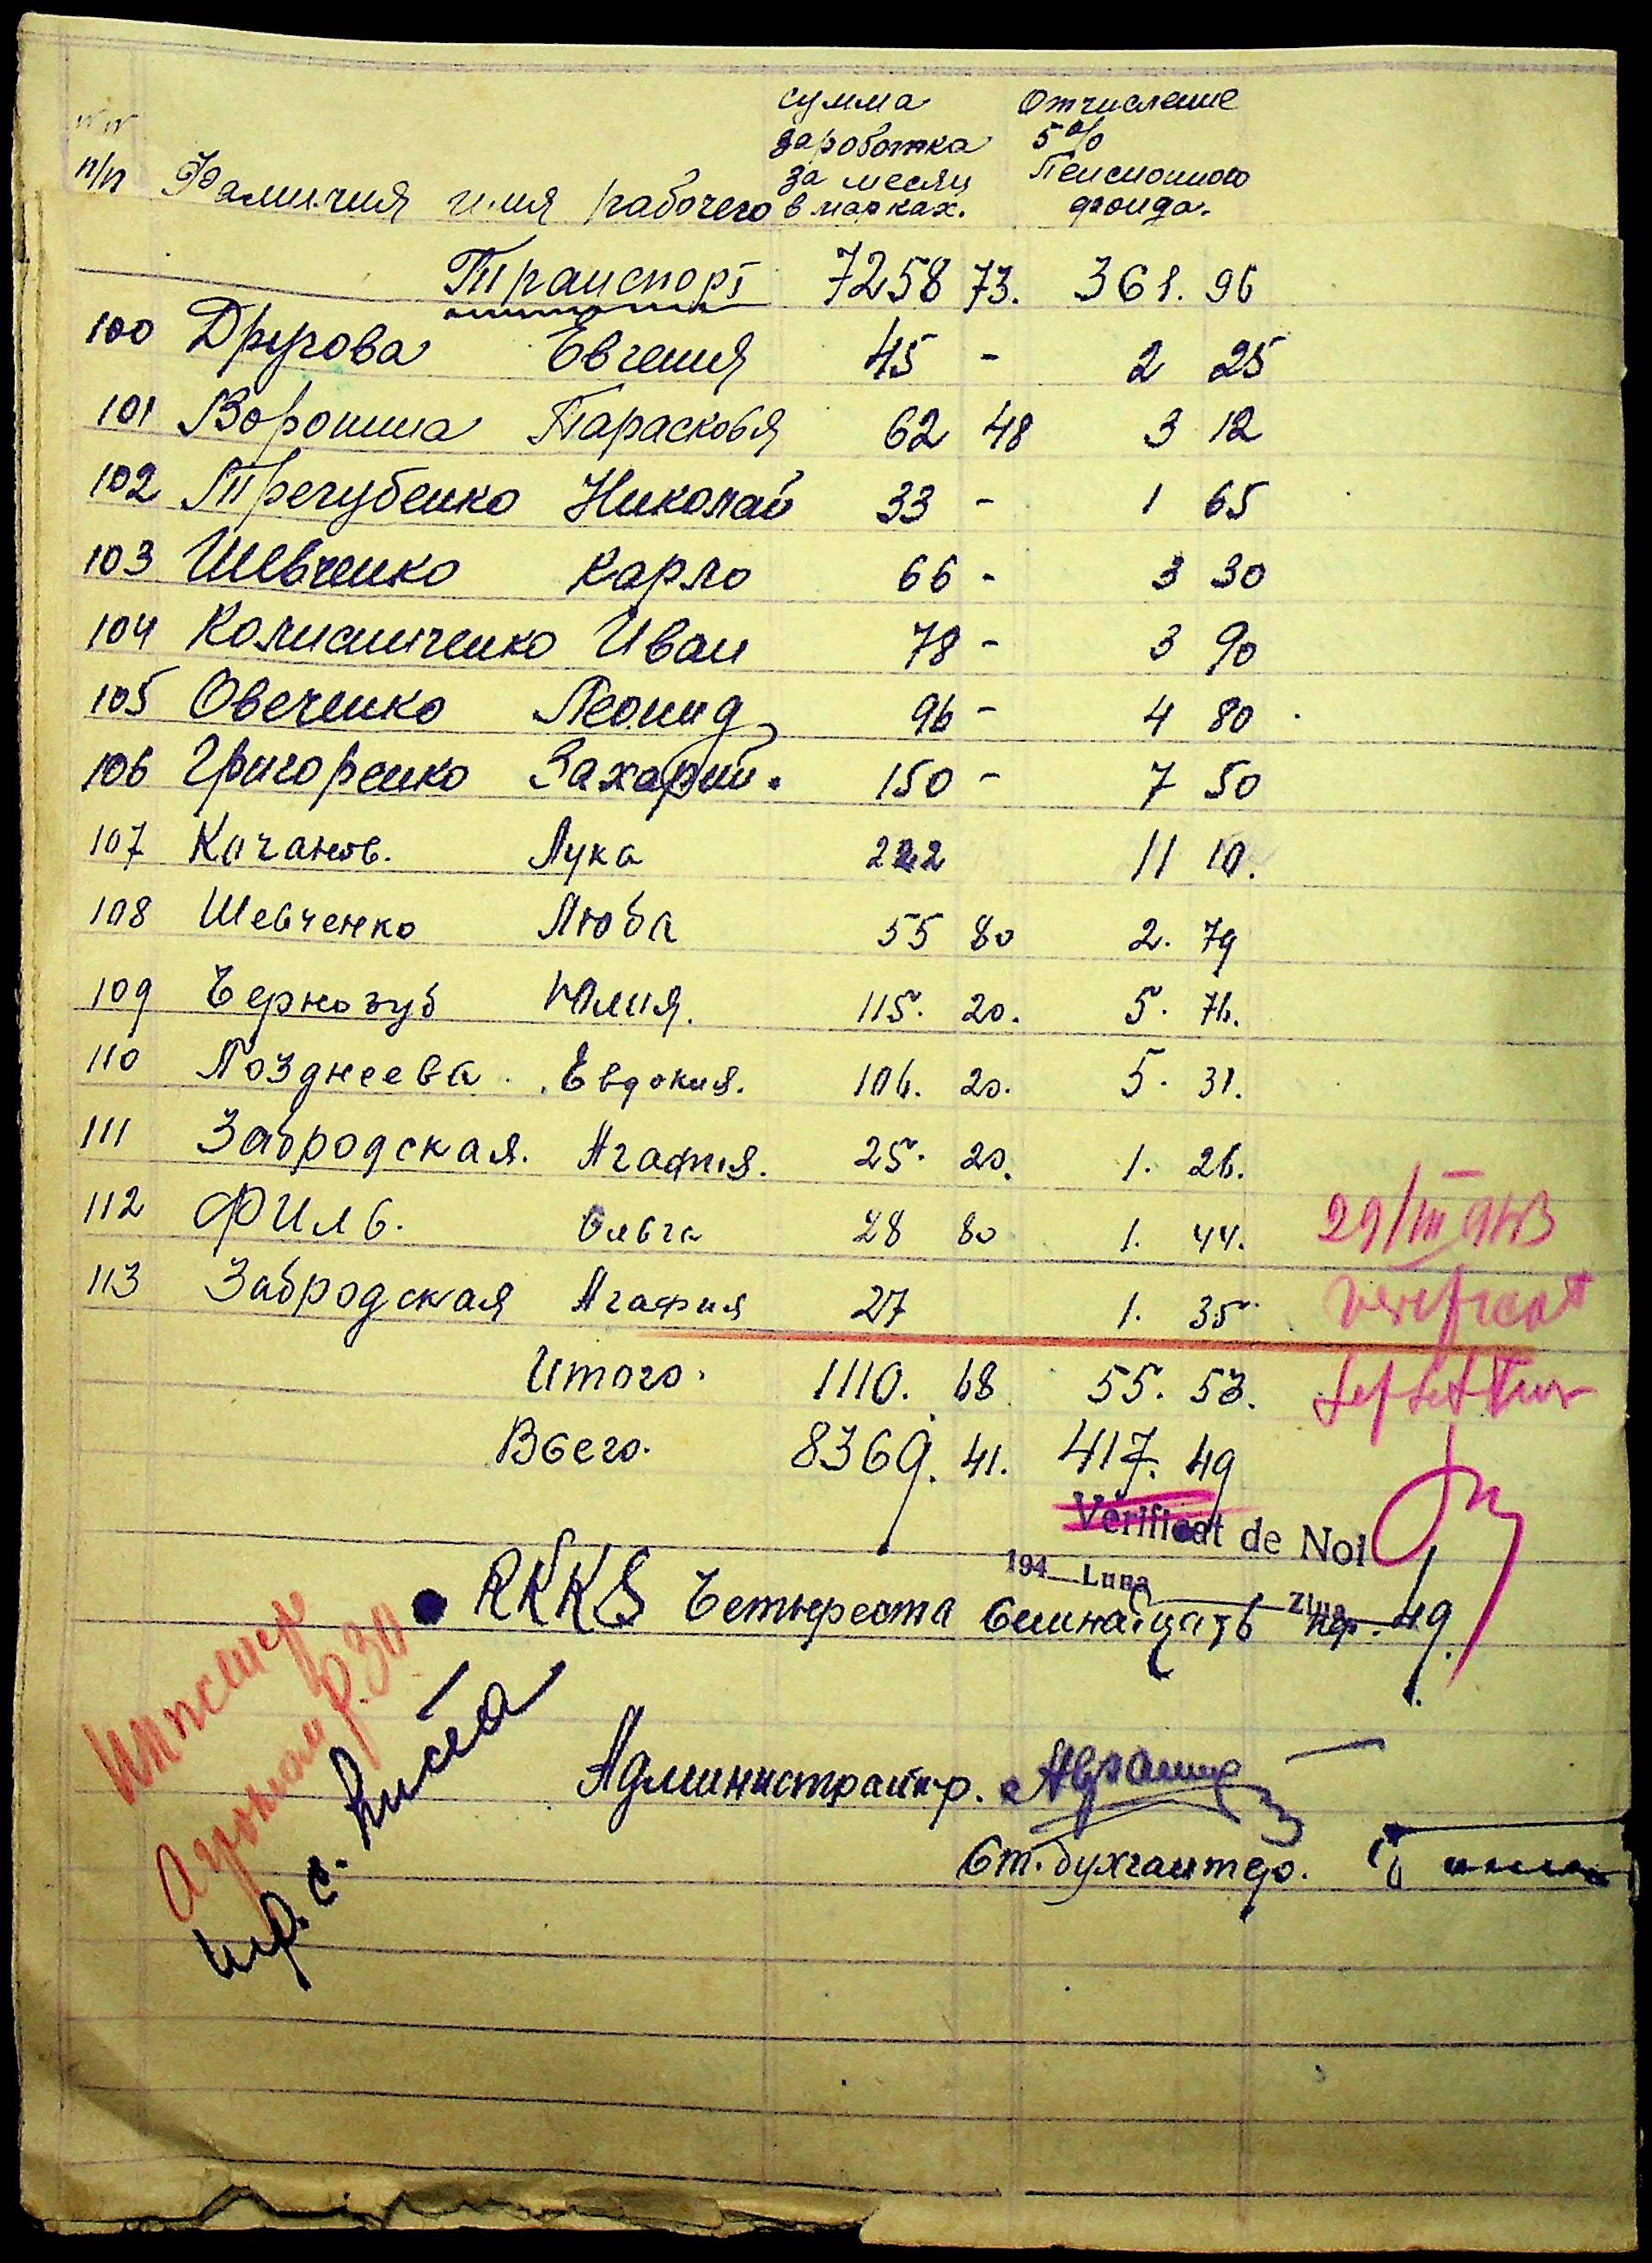 сумма Отчисление
№№ заработка 5%
п/п Фамилия имя рабочего за месяц в марках. Пенсионного фонда.
Транспорт 7258 73. 361. 96
100 Другова Евгения 45 - 2 25
101 Воронина Парасковья 62 48 3 12
102 Трегубенко Николай 33 - 1 65
103 Шевченко Карло 66 - 3 30
104 Колисниченко Иван 78 - 3 90
105 Овеченко Леонид 96 - 4 80
106 Григоренко Захарий. 150 - 7 50
107 Качанов. Лука 222 11 10.
108 Шевченко Люба 55 80 2. 79
109 Чернозуб Юлия. 115. 20. 5. 76.
110 Позднеева. Евдокия. 106. 20. 5. 31.
111 Забродская. Агафия. 25. 20. 1. 26.
112 Филь. Ольга 28 80 1. 44.
113 Забродская Агафия 27 1. 35
29/III 943
Verificat
Итого. 1110. 68 55. 53.
Всего. 8369. 41. 417. 49
Verificat de Noi
194 Luna Ziua
RKKS Четыреста семнадцать пф. 49.
Администратор.
Ст. бухгалтер.